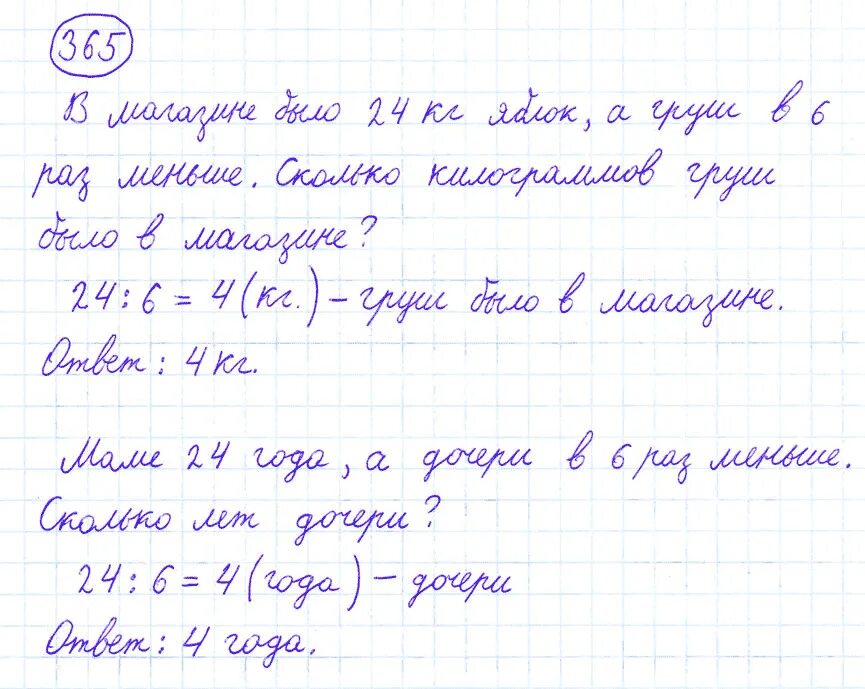 365
В магазине было 24 кг яблок, а груш в 6
раз меньше. Сколько килограммов груш
было в магазине?
24 : 6 = 4 (кг.) – груш было в магазине.
Ответ : 4 кг.
Маме 24 года, а дочери в 6 раз меньше.
Сколько лет дочери?
24 : 6 = 4 (года) – дочери
Ответ : 4 года.